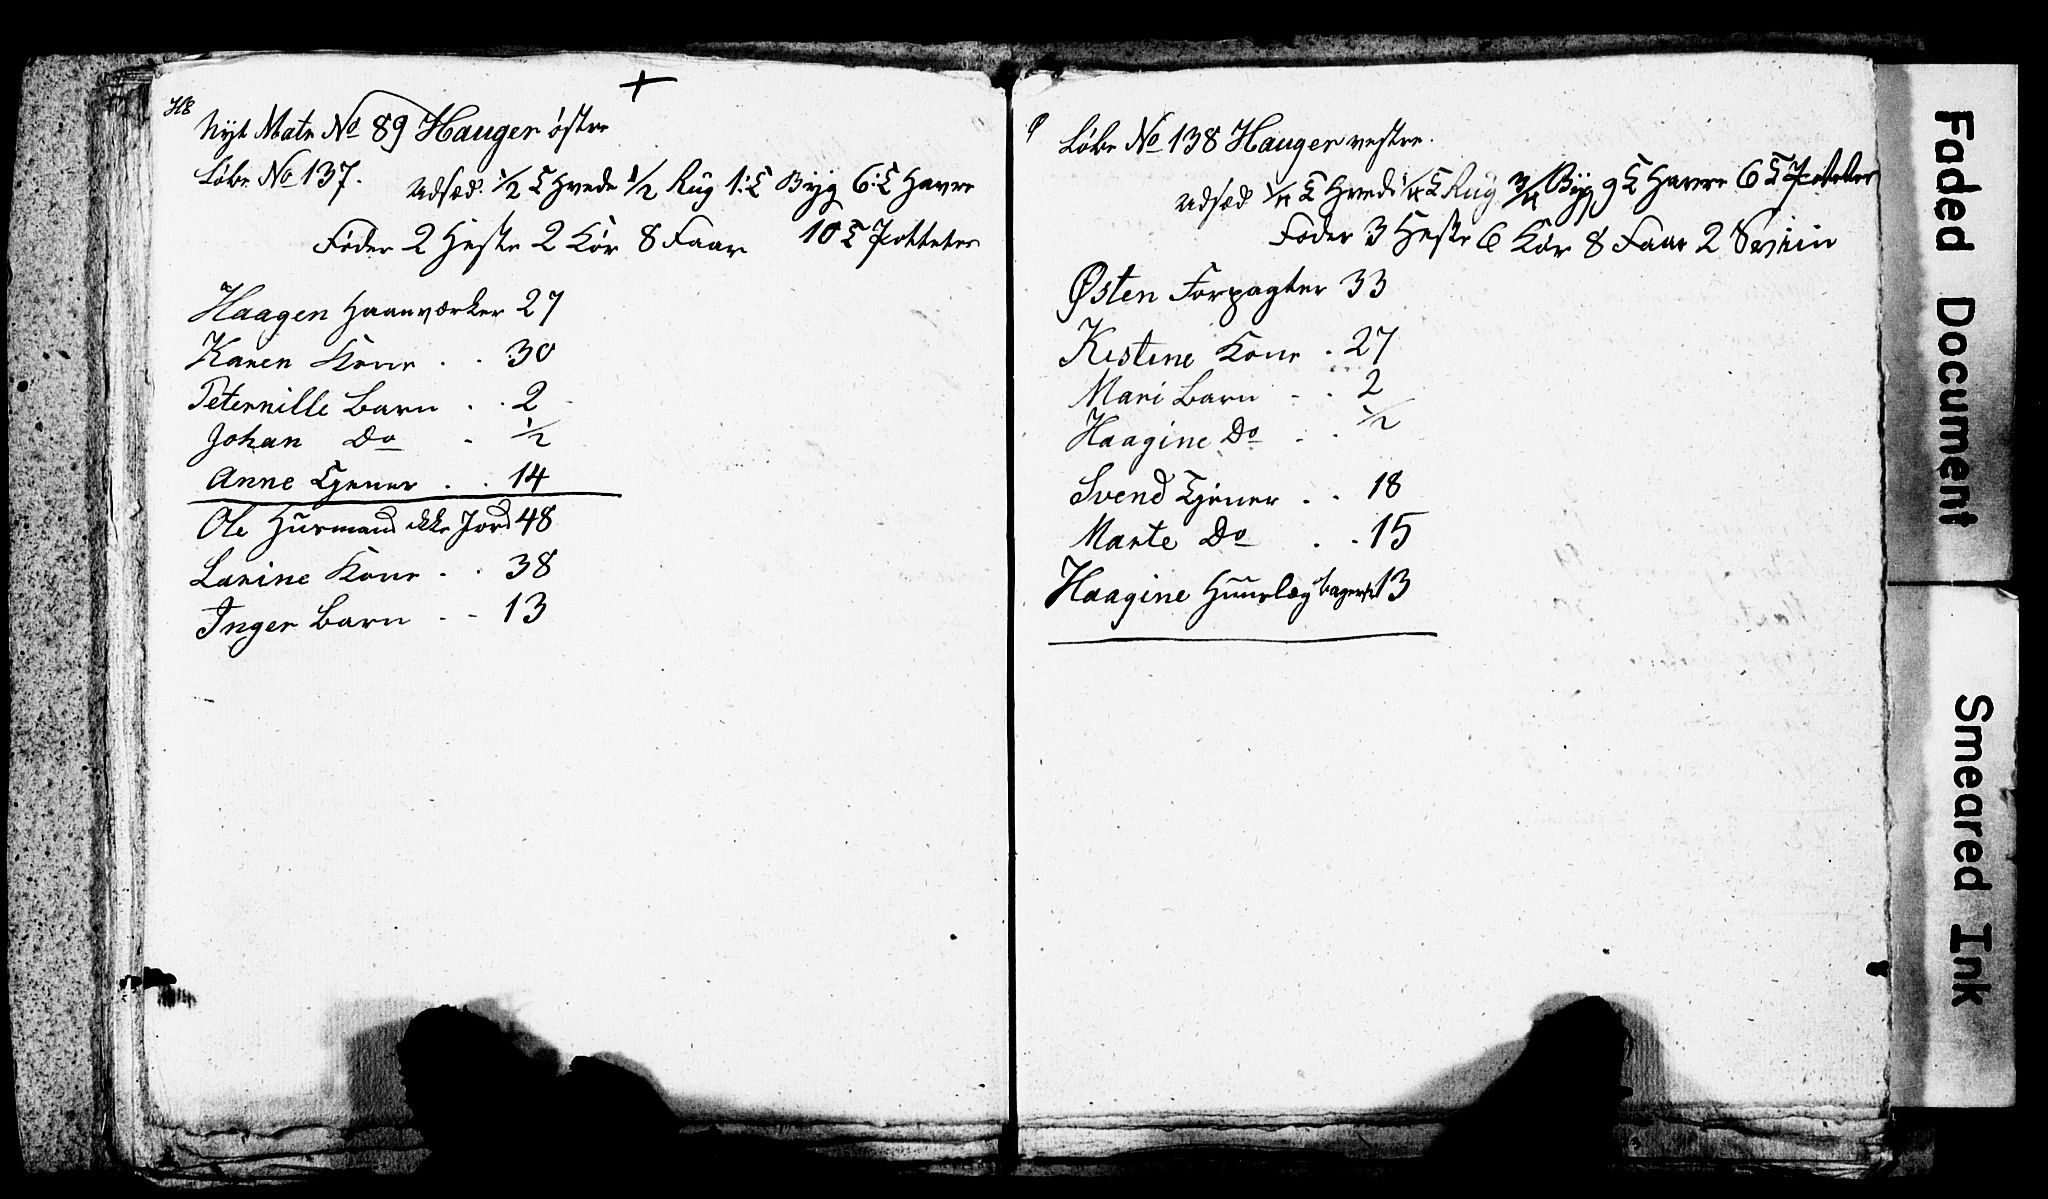 +
Nyt Matr No 89 Hauger østre
Løbe No 137.
Udsæd: 1/2 T Hvede 1/2 Rug 1:T Byg 6:T Havre
10 T Potteter
Føder 2 Heste 2 Kør 8 Faar
Haagen Haanværker 27
Karen Kone . . 30
Peternille Barn . . 2
Johan Do . 1/2
Anne Tjener . . 14
Ole Husmand ikke Jord 48
Larine Kone . . 38
Inger Barn . . 13
Løbe No 138 Hauger vestre.
Udsæd 1/4 T Hvede 1/4 T Rug 3/4 Byg 9 T Havre 6 T Poteter
Føder 3 Heste 6 Kør 8 Faar 2 Sviin
Østen Forpagter 33
Kistine Kone . 27
Mari Barn . . 2
Haagine Do . . 1/2
Svend Tjener . . 18
Marte Do . . 15
Haagine 13
Faded Document
Smeared Ink